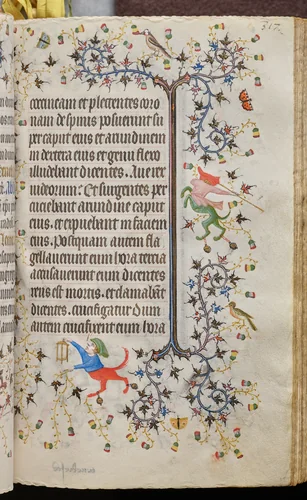 317.
coccineam et plectentes coro
nam de spinis posuerunt su
per caput eius et arundinem
in dextera eius et genu flexo
illudebant dicentes. Aue rex
iudeorum: Et surgentes per
cuciebant arundine caput
eius. et expuebant in faciem
eius. postquam autem fla
gellauerunt eum hora tercia
accusauerunt eum dicentes
reus est mortis. et clamabant
dicentes. crucifigatur Dum
autem crucifixerunt eum hora